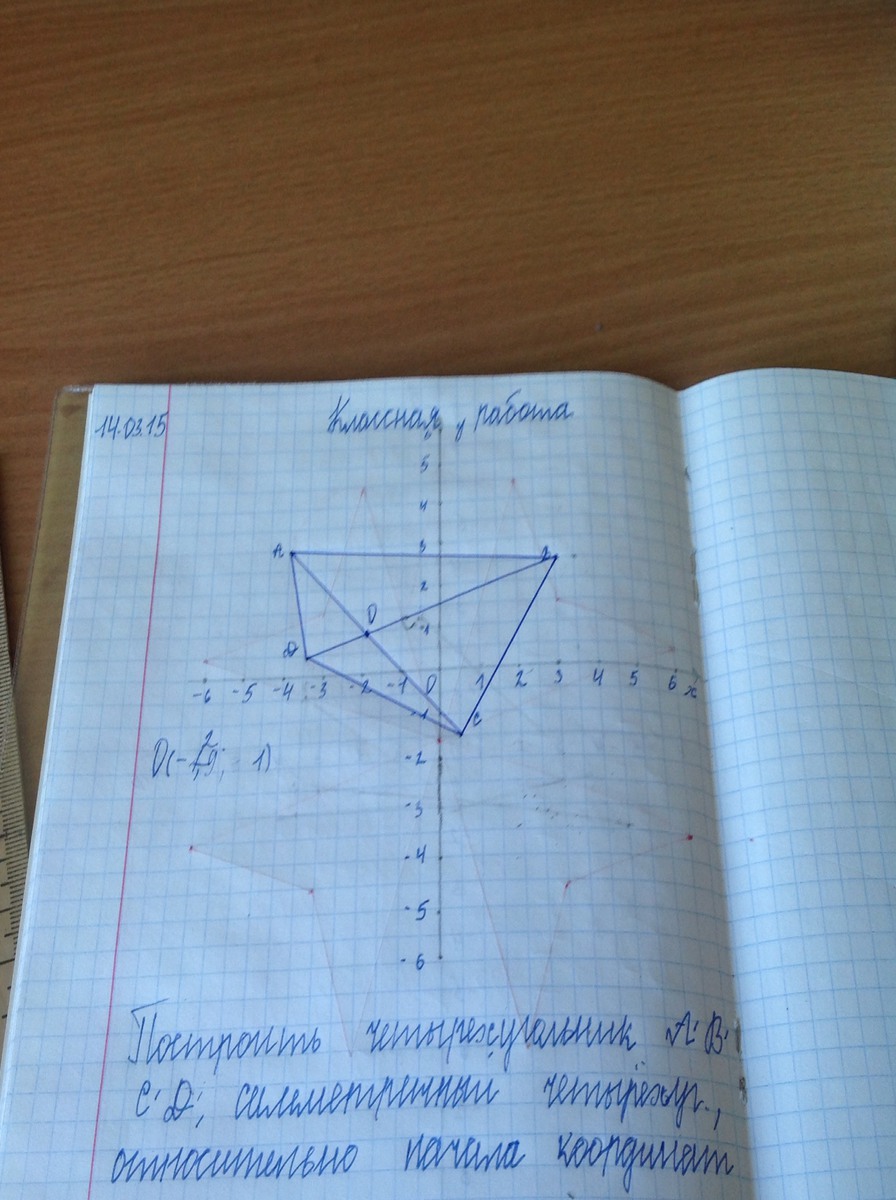 14.03.15 Классная работа
у
5
4
А 3 В
2
О 1
D
-6 -5 -4 -3 -2 -1 0 1 2 3 4 5 6 х
-1 С
-2
-3
-4
-5
-6
Построить четырехугольник А'В'
С'D', симметричный четырёхуг.,
относительно начала координат